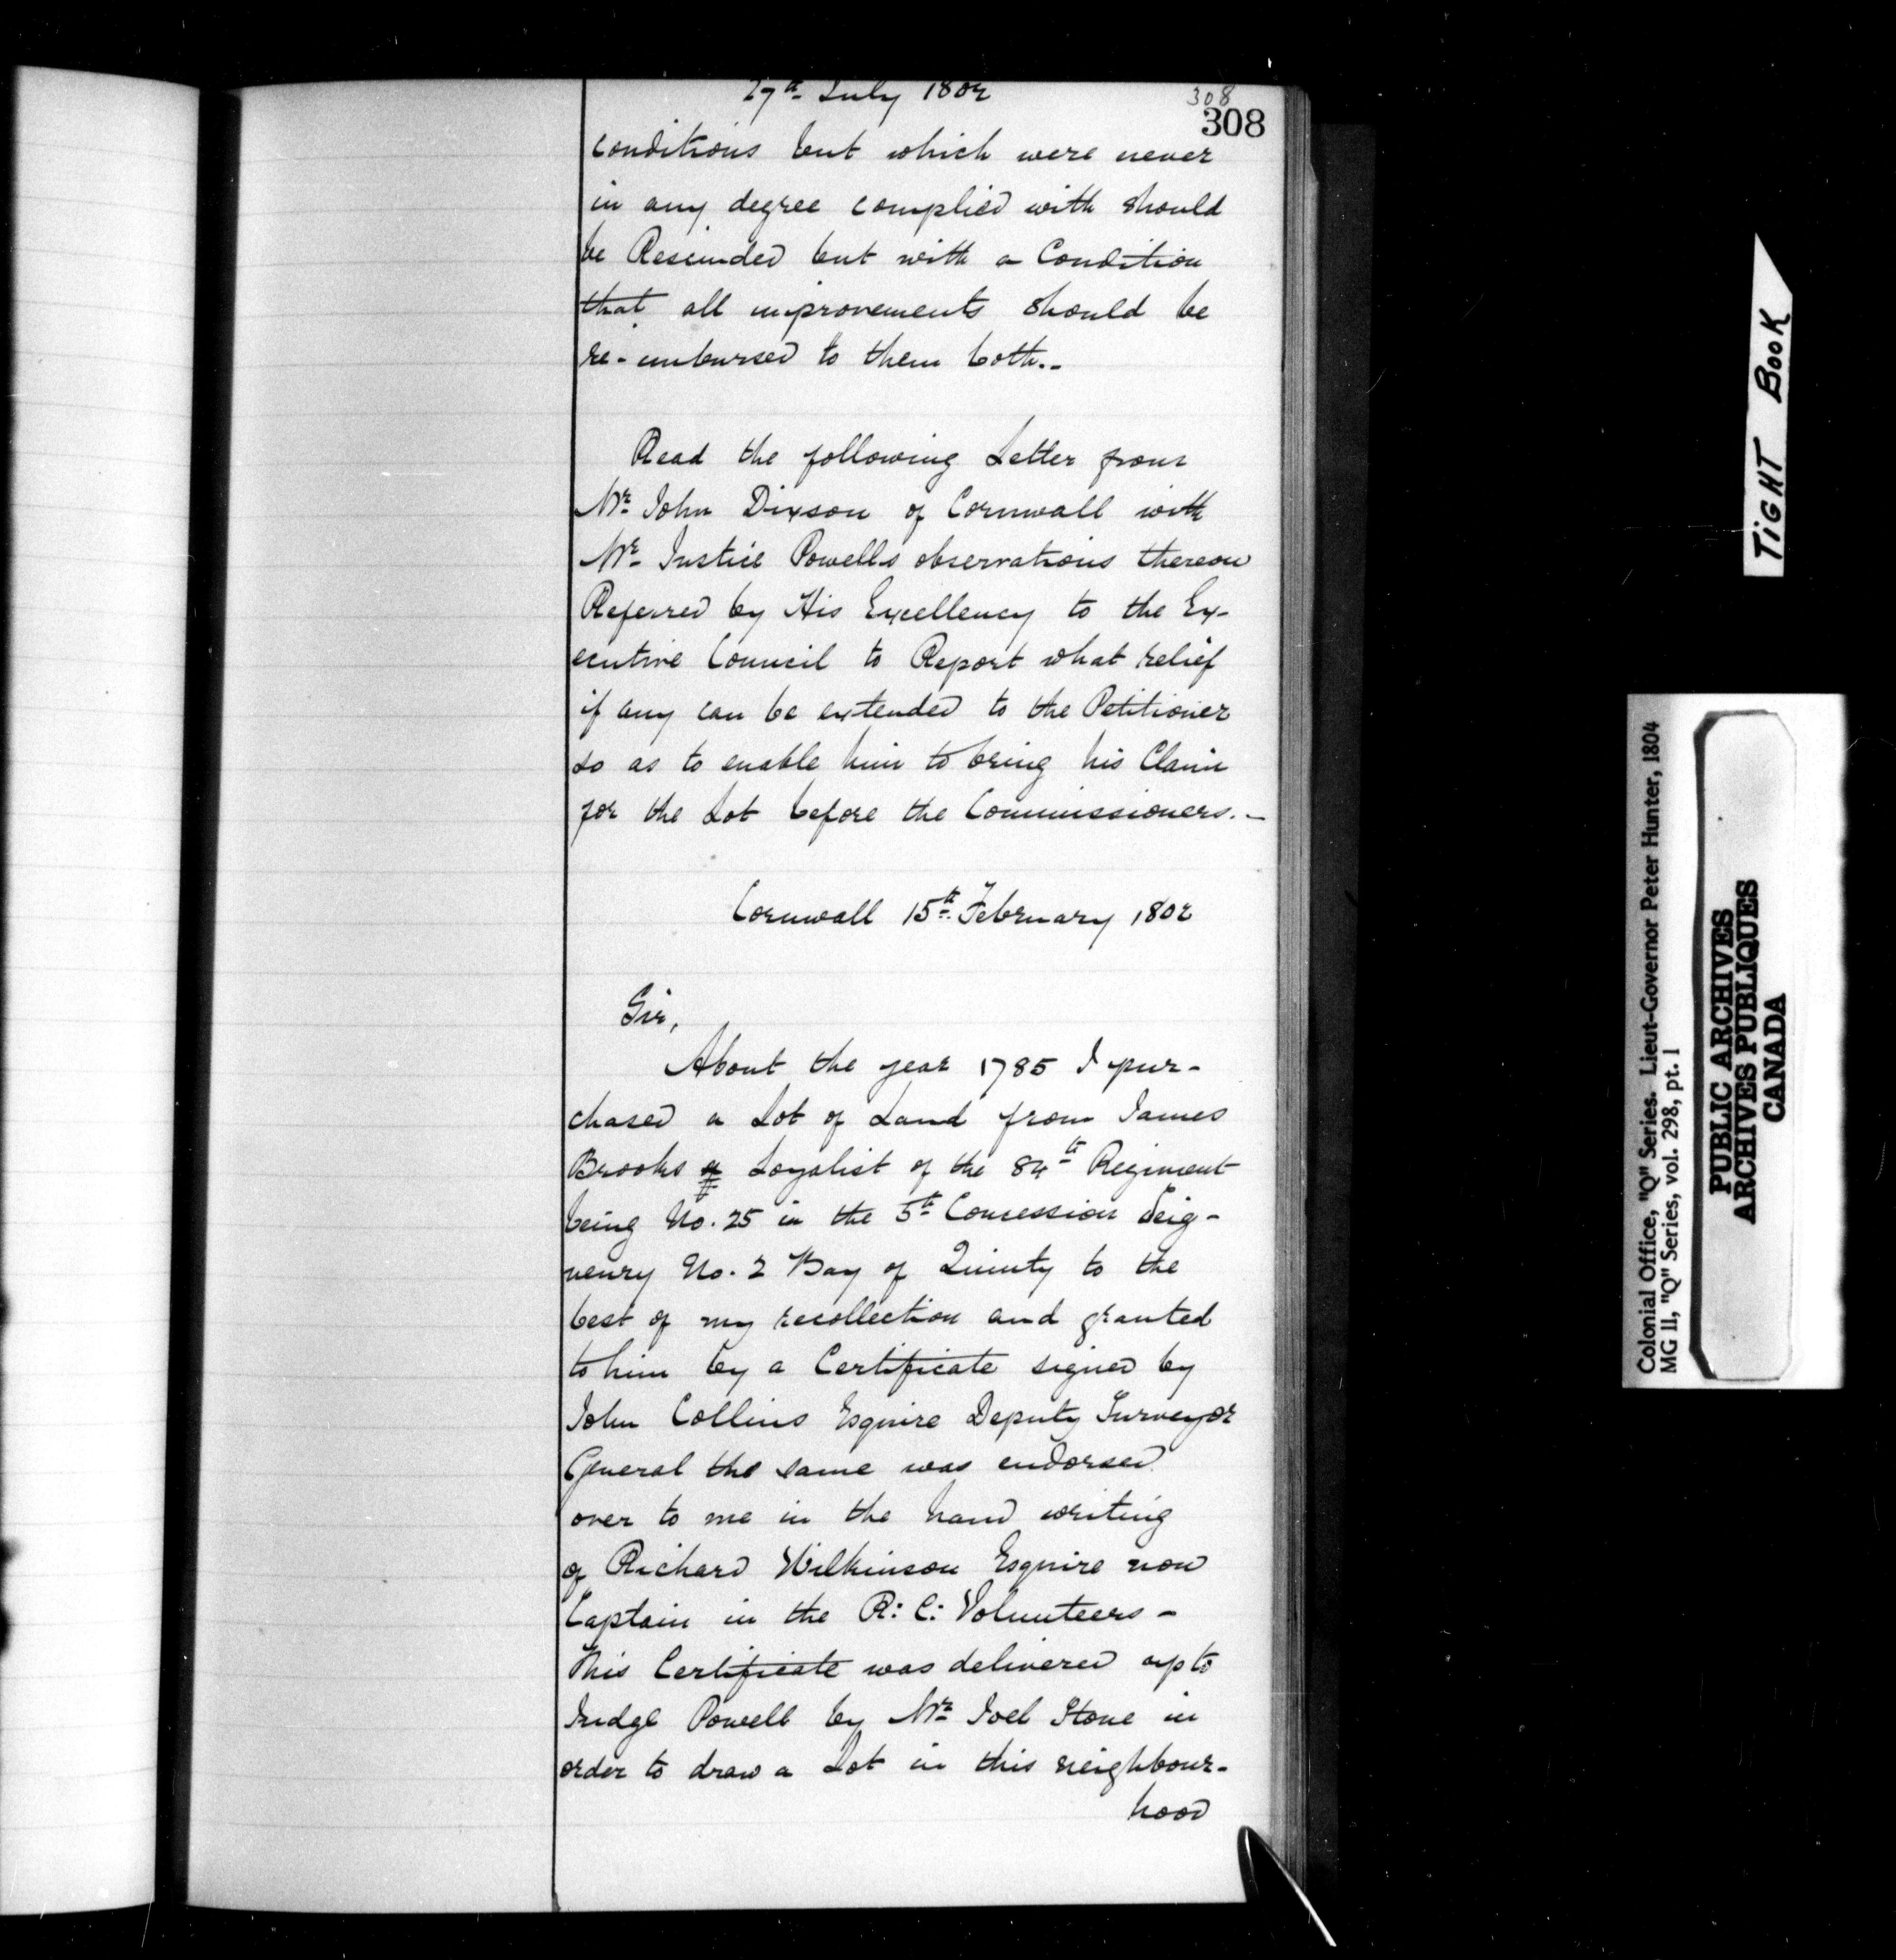 27th July 1802
308
308
conditions but which were never
in any degree complied with should
be Rescinded but with a Condition
that all improvements should be
re-imbursed to them both.-
Read the following Letter from
Mr John Dixson of Cornwall with
Mr Justice Powells observations thereon
Referred by His Excellency to the Ex-
ecutive Council to Report what relief
if any can be extended to the Petitioner
so as to enable him to bring his Claim
for the Lot before the Commissioners.-
Cornwall 15th February 1802
Sir,
About the year 1785 I pur-
chased a Lot of Land from James
Brooks a Loyalist of the 84th Regiment
being No. 25 in the 5th Concession Seig-
neury No. 2 Bay of Quinty to the
best of my recollection and granted
to him by a Certificate signed by
John Collins Esquire Deputy Surveyor
General the same was endorsed
over to me in the hand writing
of Richard Wilkinson Esquire now
Captain in the R: C: Volunteers -
This Certificate was delivered up to
Judge Powell by Mr Joel Stone in
order to draw a Lot in this neighbour-
hood
TIGHT BOOK
Colonial Office, "Q" Series. Lieut-Governor Peter Hunter, 1804
MG 11, "Q" Series, vol. 298, pt. 1
PUBLIC ARCHIVES
ARCHIVES PUBLIQUES
CANADA